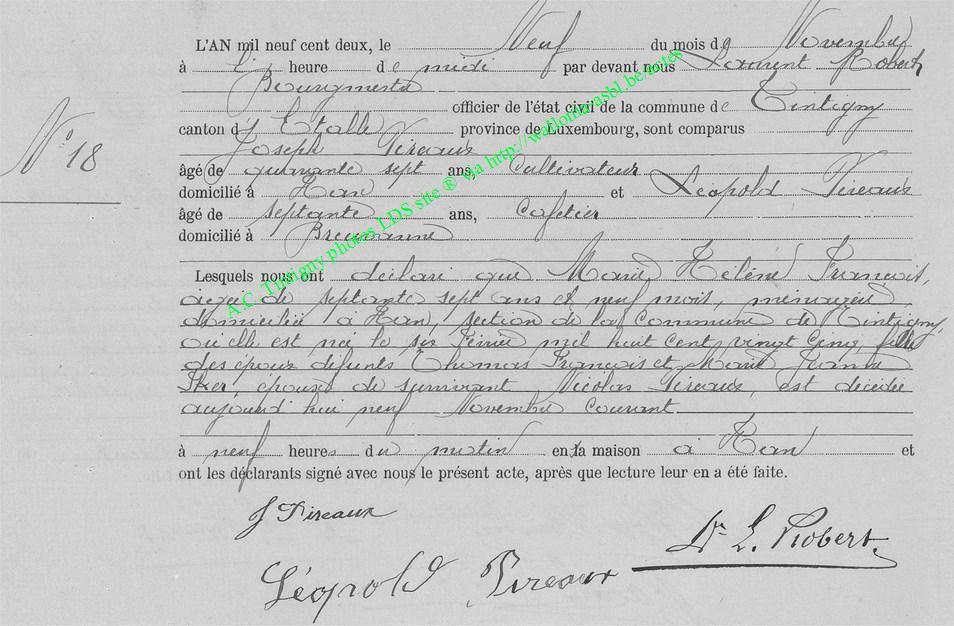 L'AN mil neuf cent deux, le Neuf du mois de Novembre
à heure de midi par devant nous Laurent Robert
Bourgmestre
officier de l'état civil de la commune de Tintigny
canton d' Etalle province de Luxembourg, sont comparus
Joseph Pireaux
âgé de quarante sept ans, Cultivateur
domicilié à Han et Léopold Pireaux
âgé de septante ans, Cafetier
domicilié à
Lesquels nous ont déclaré que Marie Hélène François,
agée de septante sept ans et neuf mois, ménagère
domiciliée à Han, section de la Commune de Tintigny,
où elle est née le six Février mil huit cent vingt cinq, fille
des époux défunts Thomas François et Marie Jeanne
épouse de survivant Nicolas Pireaux, est décédée
aujourd'hui neuf Novembre courant
à neuf heures du matin en sa maison à Han et
ont les déclarants signé avec nous le présent acte, après que lecture leur en a été faite.
N° 18
J Pireaux
Dr L. Robert.
Léopold Pireaux
A.C. Tintigny photos LDS site ® via http://wallonia-asbl.be/actes